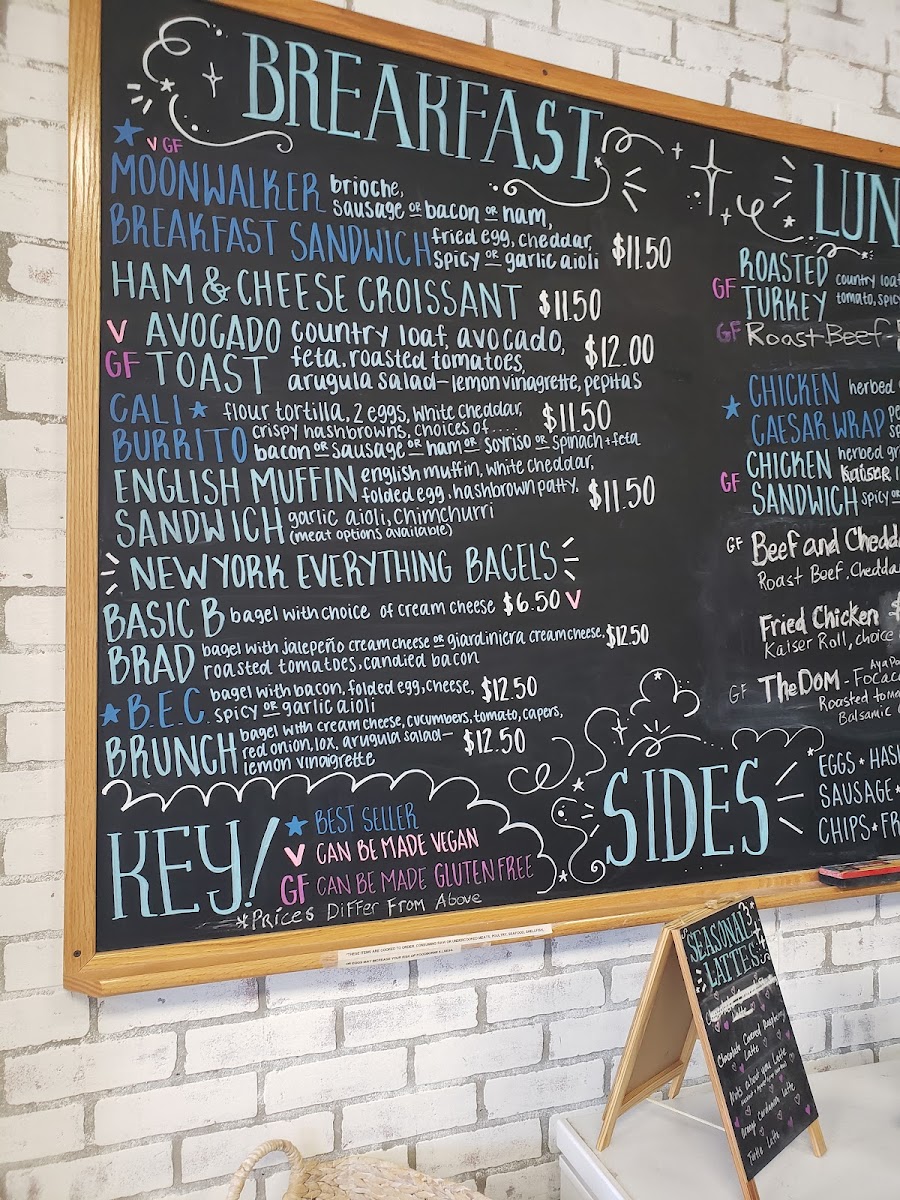 BREAKFAST
V GF
MOONWALKER brioche,
sausage OR bacon OR ham,
BREAKFAST SANDWICH fried egg, cheddar,
spicy OR garlic aioli $11.50
HAM & CHEESE CROISSANT $11.50
V AVOCADO country loaf, avocado,
GF TOAST feta, roasted tomatoes, $12.00
arugula salad - lemon vinagrette, pepitas
CALI flour tortilla, 2 eggs, white cheddar, $11.50
BURRITO crispy hashbrowns, choices of ....
bacon OR sausage OR ham OR soyriso OR spinach + feta
ENGLISH MUFFIN english muffin, white cheddar,
folded egg, hashbrown patty, $11.50
SANDWICH garlic aioli, chimchurri
(meat options available)
NEW YORK EVERYTHING BAGELS
BASIC B bagel with choice of cream cheese $6.50 V
BRAD bagel with jalepeño cream cheese OR giardiniera cream cheese, $12.50
roasted tomatoes, candied bacon
B.E.C bagel with bacon, folded egg, cheese, $12.50
spicy OR garlic aioli
BRUNCH bagel with cream cheese, cucumbers, tomato, capers,
red onion, lox, arugula salad - $12.50
lemon vinaigrette
KEY!
BEST SELLER
V CAN BE MADE VEGAN
GF CAN BE MADE GLUTEN FREE
*Prices Differ From Above
LUN
GF ROASTED country loa
TURKEY tomato, spicy
GF Roast Beef -
CHICKEN herbed
CAESAR WRAP
GF CHICKEN herbed gr
Kaiser
SANDWICH spicy
GF Beef and Chedd
Roast Beef, Chedda
Fried Chicken
Kaiser Roll, choice
GF The DOM - Focac
Roasted toma
Balsamic
SIDES
EGGS • HAS
SAUSAGE •
CHIPS • FR
SEASONAL
LATTES
Chocolate Covered Raspberry
Latte
Nuts about you Latte
Orange Cardamom Latte
Turtle Latte